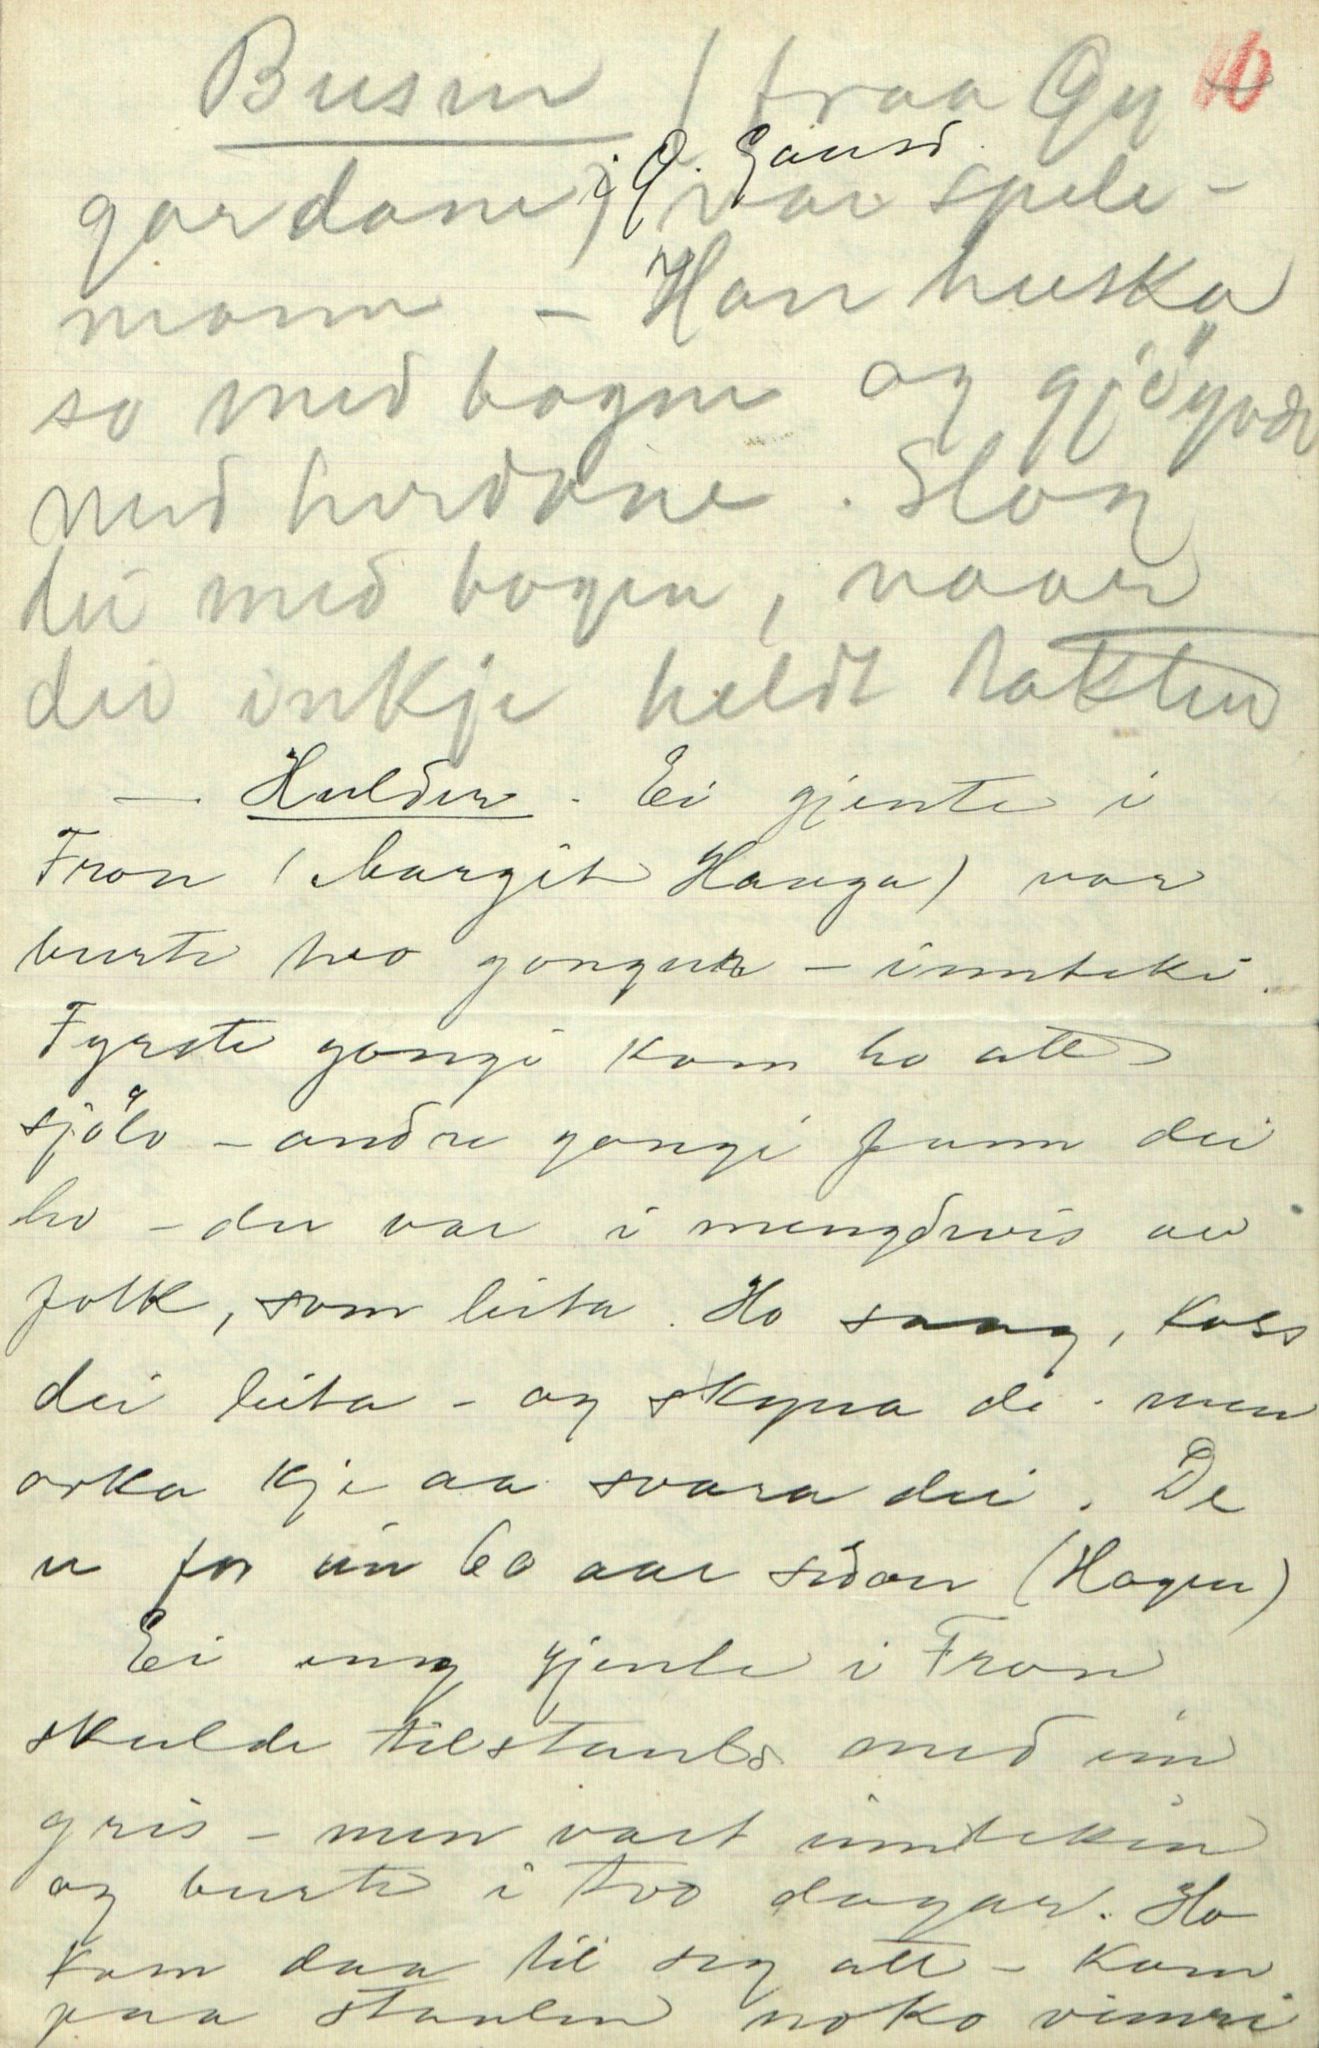 16
Busin (fraa Øy-
gardane) i Ø. Gausd. var spele-
mann - Han huska
so med bogen og gjøyvde
med hordane. Slog
dei med bogen, naar
dei inkje heldt takten
— Hulder. Ei gjente i
Fron (Margit Hauga) var
burte tvo gonger - innteki.
Fyrste gongi kom ho att
sjølv - andre gongi funn dei
ho - der var i mengdevis av
folk, som leita. Ho saag, koss
dei leita - og skyna de - men
orka kje aa svara dei. De
er for ein 60 aar sidan (Hagen)
Ei ung gjente i Fron
skulde til støuls med ein
gris - men vart inntekin
og burte i tvo dagar. Ho
kom daa til seg att - kom
paa støulen noko vimri